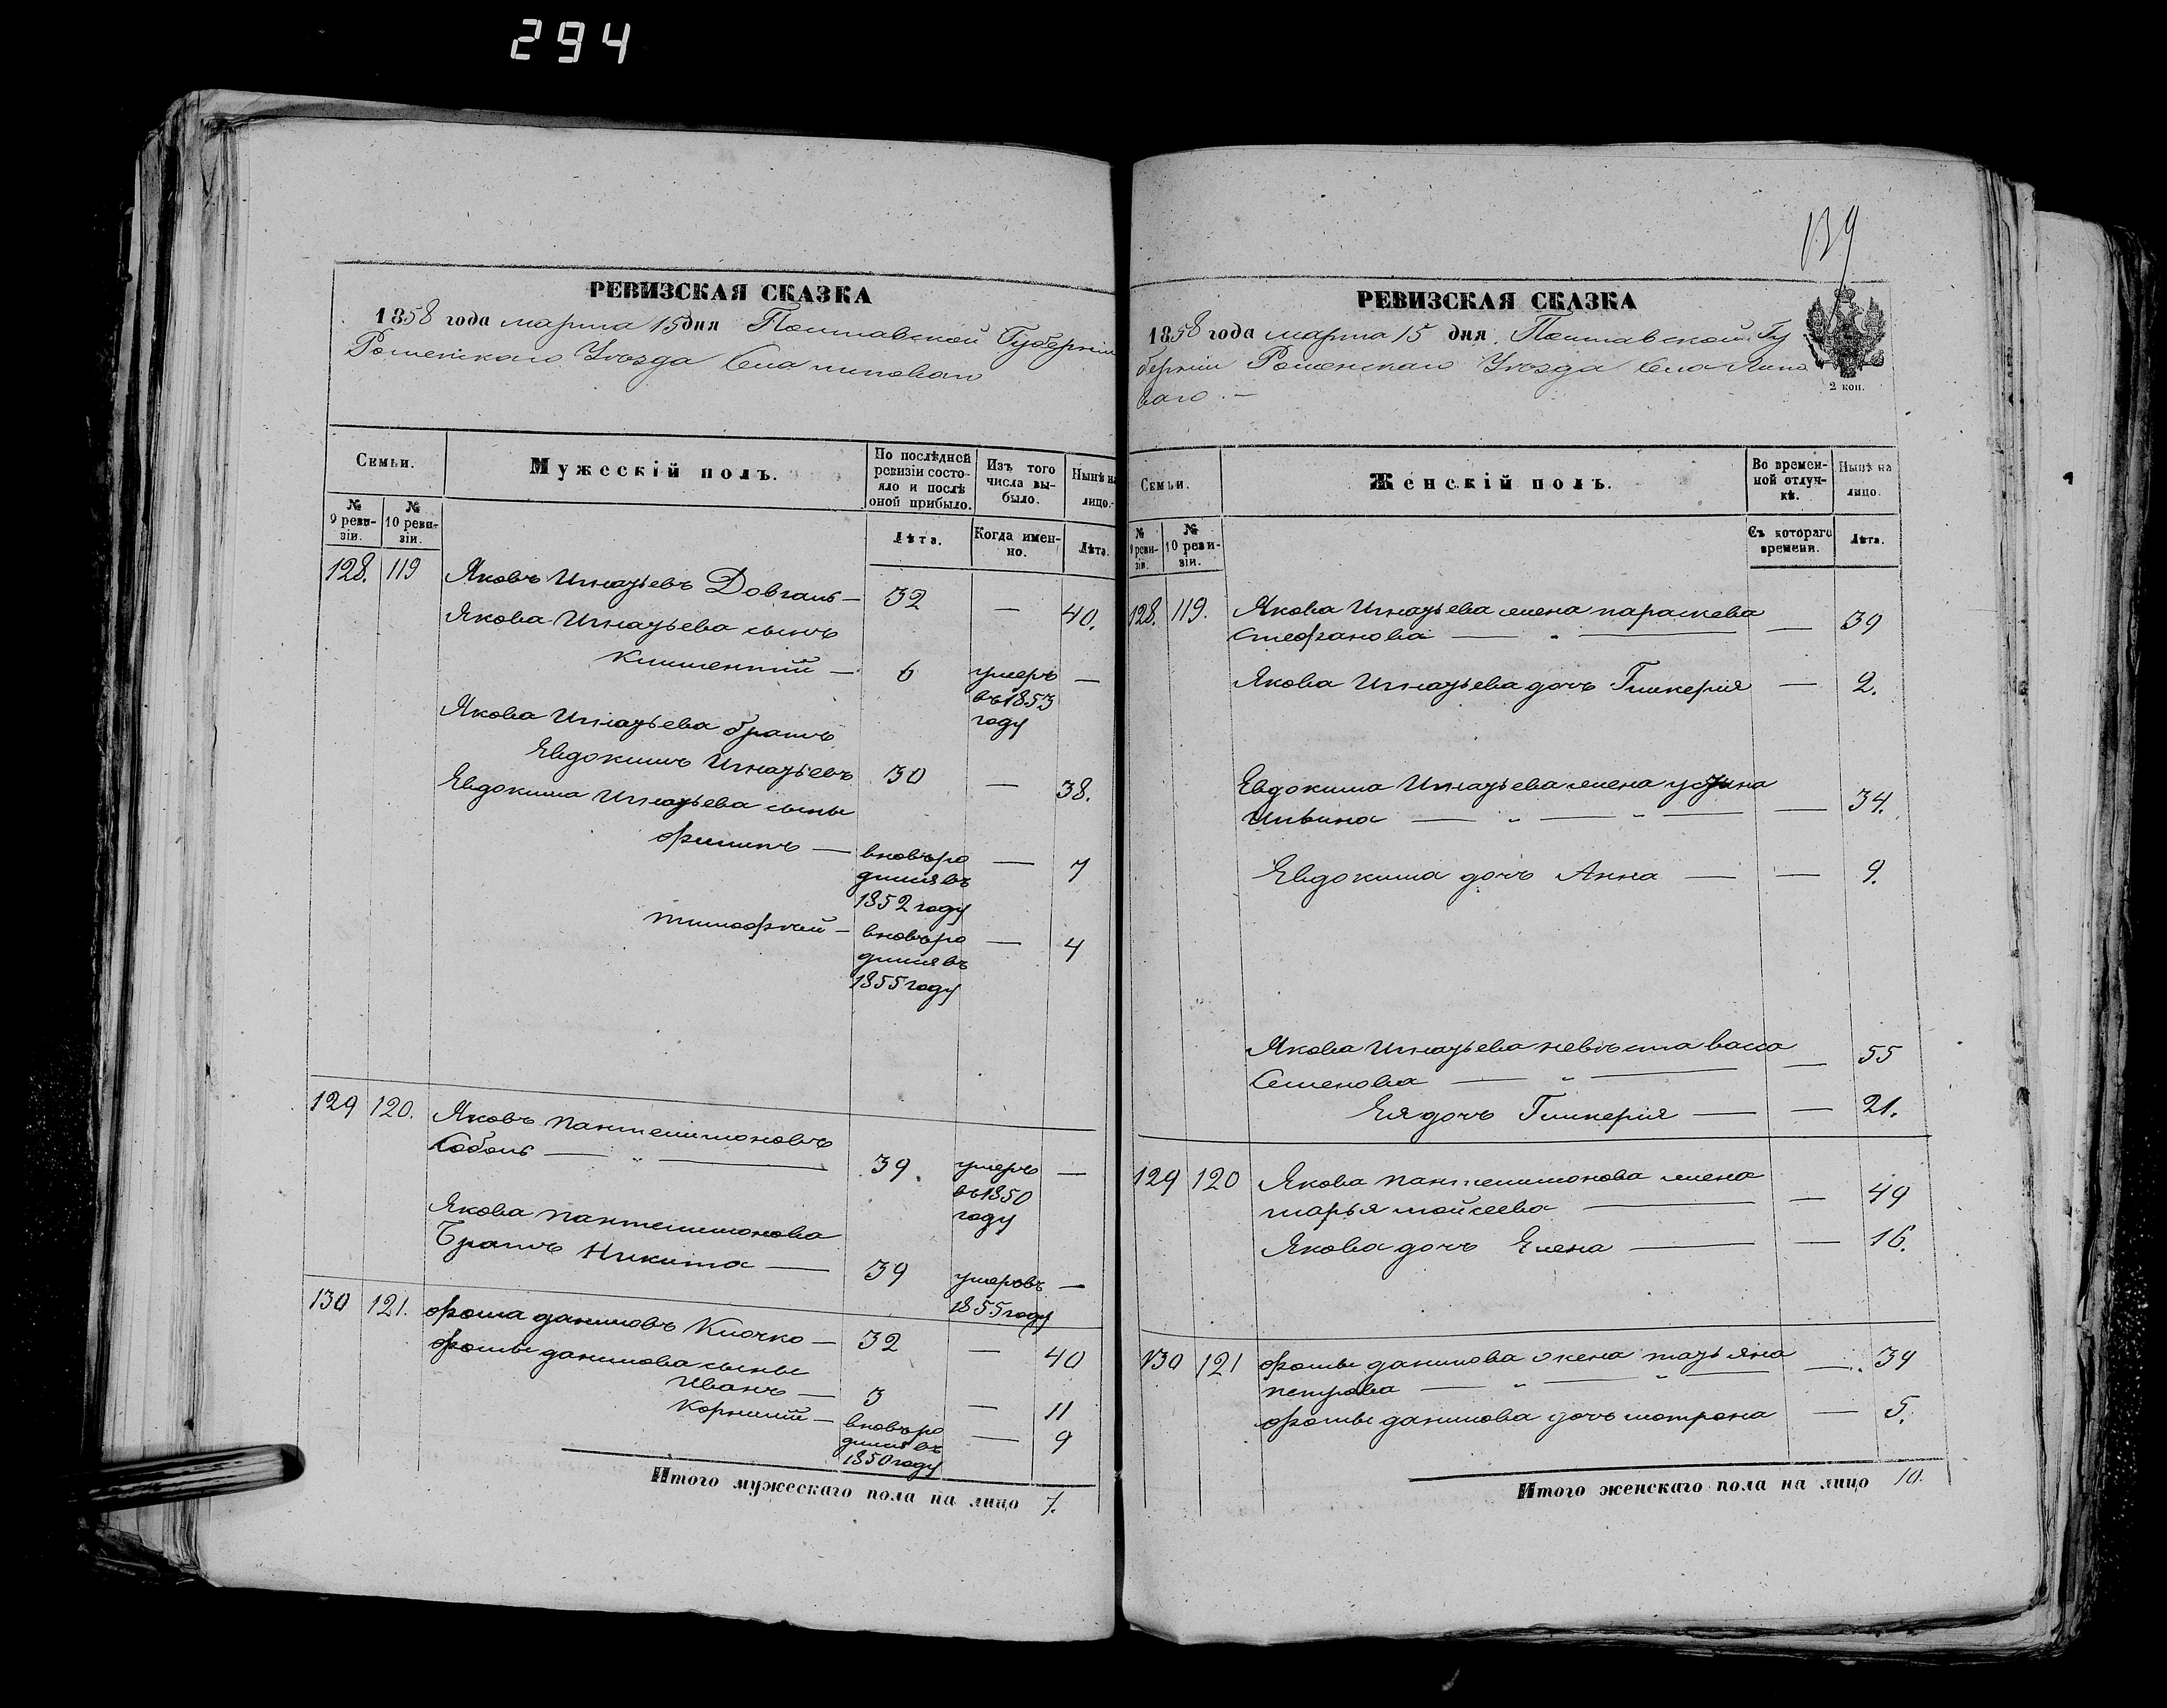 294
РЕВИЗСКАЯ СКАЗКА
1858 года марта 15 дня Полтавской Губерніи
Роменскаго Уѣзда Села Липоваго
Семьи.
Мужескій полъ.
По послѣдней ревизіи состояло и послѣ оной прибыло.
Изъ того числа выбыло.
Нынѣ на лицо.
№ 9 ревизіи.
№ 10 ревизіи.
Лѣта.
Когда именно.
Лѣта.
128. 119 Яковъ Игнатьевъ Довгаль — 32 — 40.
Якова Игнатьева сынъ
Климентій — 6 умеръ —
въ 1853
году
Якова Игнатьева братъ
Евдокимъ Игнатьевъ 30 — 38.
Евдокима Игнатьева сыны
Филипъ — вновьро — 7
дился въ
1852 году
Тимофѣй — вновьро — 4
дился въ
1855 году
129 120. Яковъ Пантелимоновъ
Соболь — „ — 39. умеръ —
въ 1850
году
Якова Пантелимонова
Братъ Никита — 39 умеръ въ —
1855 году
130 121. Фома Даниловъ Клочко — 32 — 40
Фомы Данилова сыны
Иванъ — 3 — 11
Корнилій — вновьро — 9
дился въ
1850 году
Итого мужескаго пола на лицо 7.
139
РЕВИЗСКАЯ СКАЗКА
1858 года марта 15 дня. Полтавской Гу
берніи Роменскаго Уѣзда Села Липо
ваго. —
2 коп.
Семьи.
Женскій полъ.
Во временной отлучкѣ.
Нынѣ на лицо.
№ 9 ревизіи.
№ 10 ревизіи.
Съ котораго времени.
Лѣта.
128. 119. Якова Игнатьева жена Параскева
Стефанова — „ — — 39
Якова Игнатьева дочь Гликерія — 2.
Евдокима Игнатьева жена Устина
— „ — „ — — 34.
Евдокима дочь Анна — — 9.
Якова Игнатьева невѣста Васса
Семенова — „ — — 55
Ея дочь Гликерія — — 21.
129 120 Якова Пантелимонова жена
Марья Мойсеева — — 49
Якова дочь Елена — — 16.
130 121 Фомы Данилова жена Татьяна — 39
Петрова — „ — „ —
Фомы Данилова дочь Мотрона — 5.
Итого женскаго пола на лицо 10.